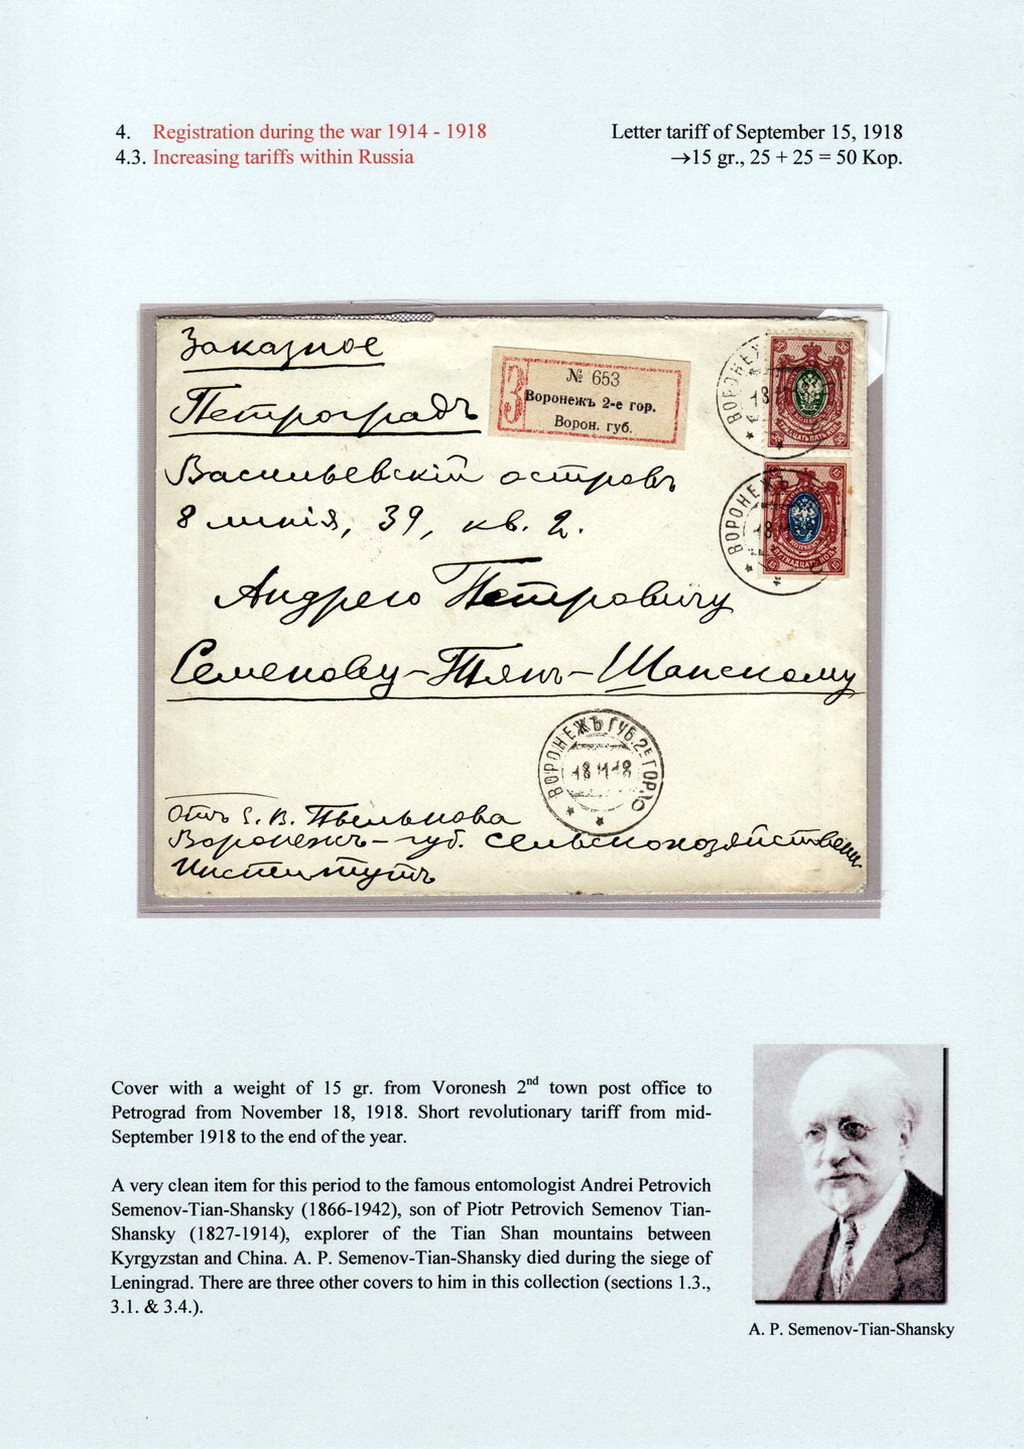 4. Registration during the war 1914 - 1918
4.3. Increasing tariffs within Russia
Letter tariff of September 15, 1918
→15 gr., 25 + 25 = 50 Kop.
Заказное
Петроградъ
Васильевскій островъ
8 линія, 39, кв. 2.
Андрею Петровичу
Семенову-Тянъ-Шанскому
З
№ 653
Воронежъ 2-е гор.
Ворон. губ.
ВОРОНЕЖЪ
18
35 35
ТРИДЦАТЬ ПЯТЬ КОП.
35 35
ВОРОНЕЖЪ
18
15 15
ПЯТНАДЦАТЬ КОП.
15 15
ВОРОНЕЖЪ ГУБ. 2Е ГОР.
18 11 18
Отъ
Воронежъ - губ. Сельскохозяйствен.
Институтъ
Cover with a weight of 15 gr. from Voronesh 2nd town post office to
Petrograd from November 18, 1918. Short revolutionary tariff from mid-
September 1918 to the end of the year.
A very clean item for this period to the famous entomologist Andrei Petrovich
Semenov-Tian-Shansky (1866-1942), son of Piotr Petrovich Semenov Tian-
Shansky (1827-1914), explorer of the Tian Shan mountains between
Kyrgyzstan and China. A. P. Semenov-Tian-Shansky died during the siege of
Leningrad. There are three other covers to him in this collection (sections 1.3.,
3.1. & 3.4.).
A. P. Semenov-Tian-Shansky